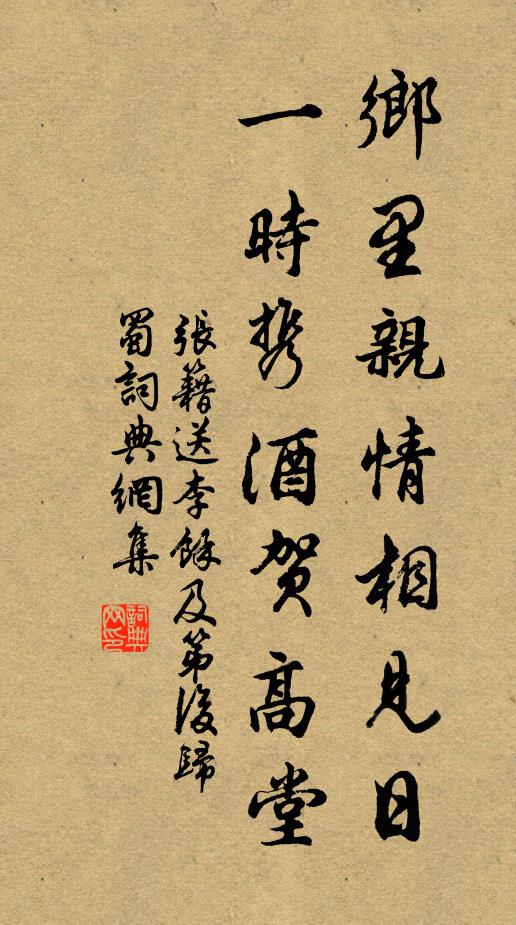 鄉里親情相見日
一時携酒賀高堂
張籍送李餘及第後歸
蜀詞典網集
詞典
网印